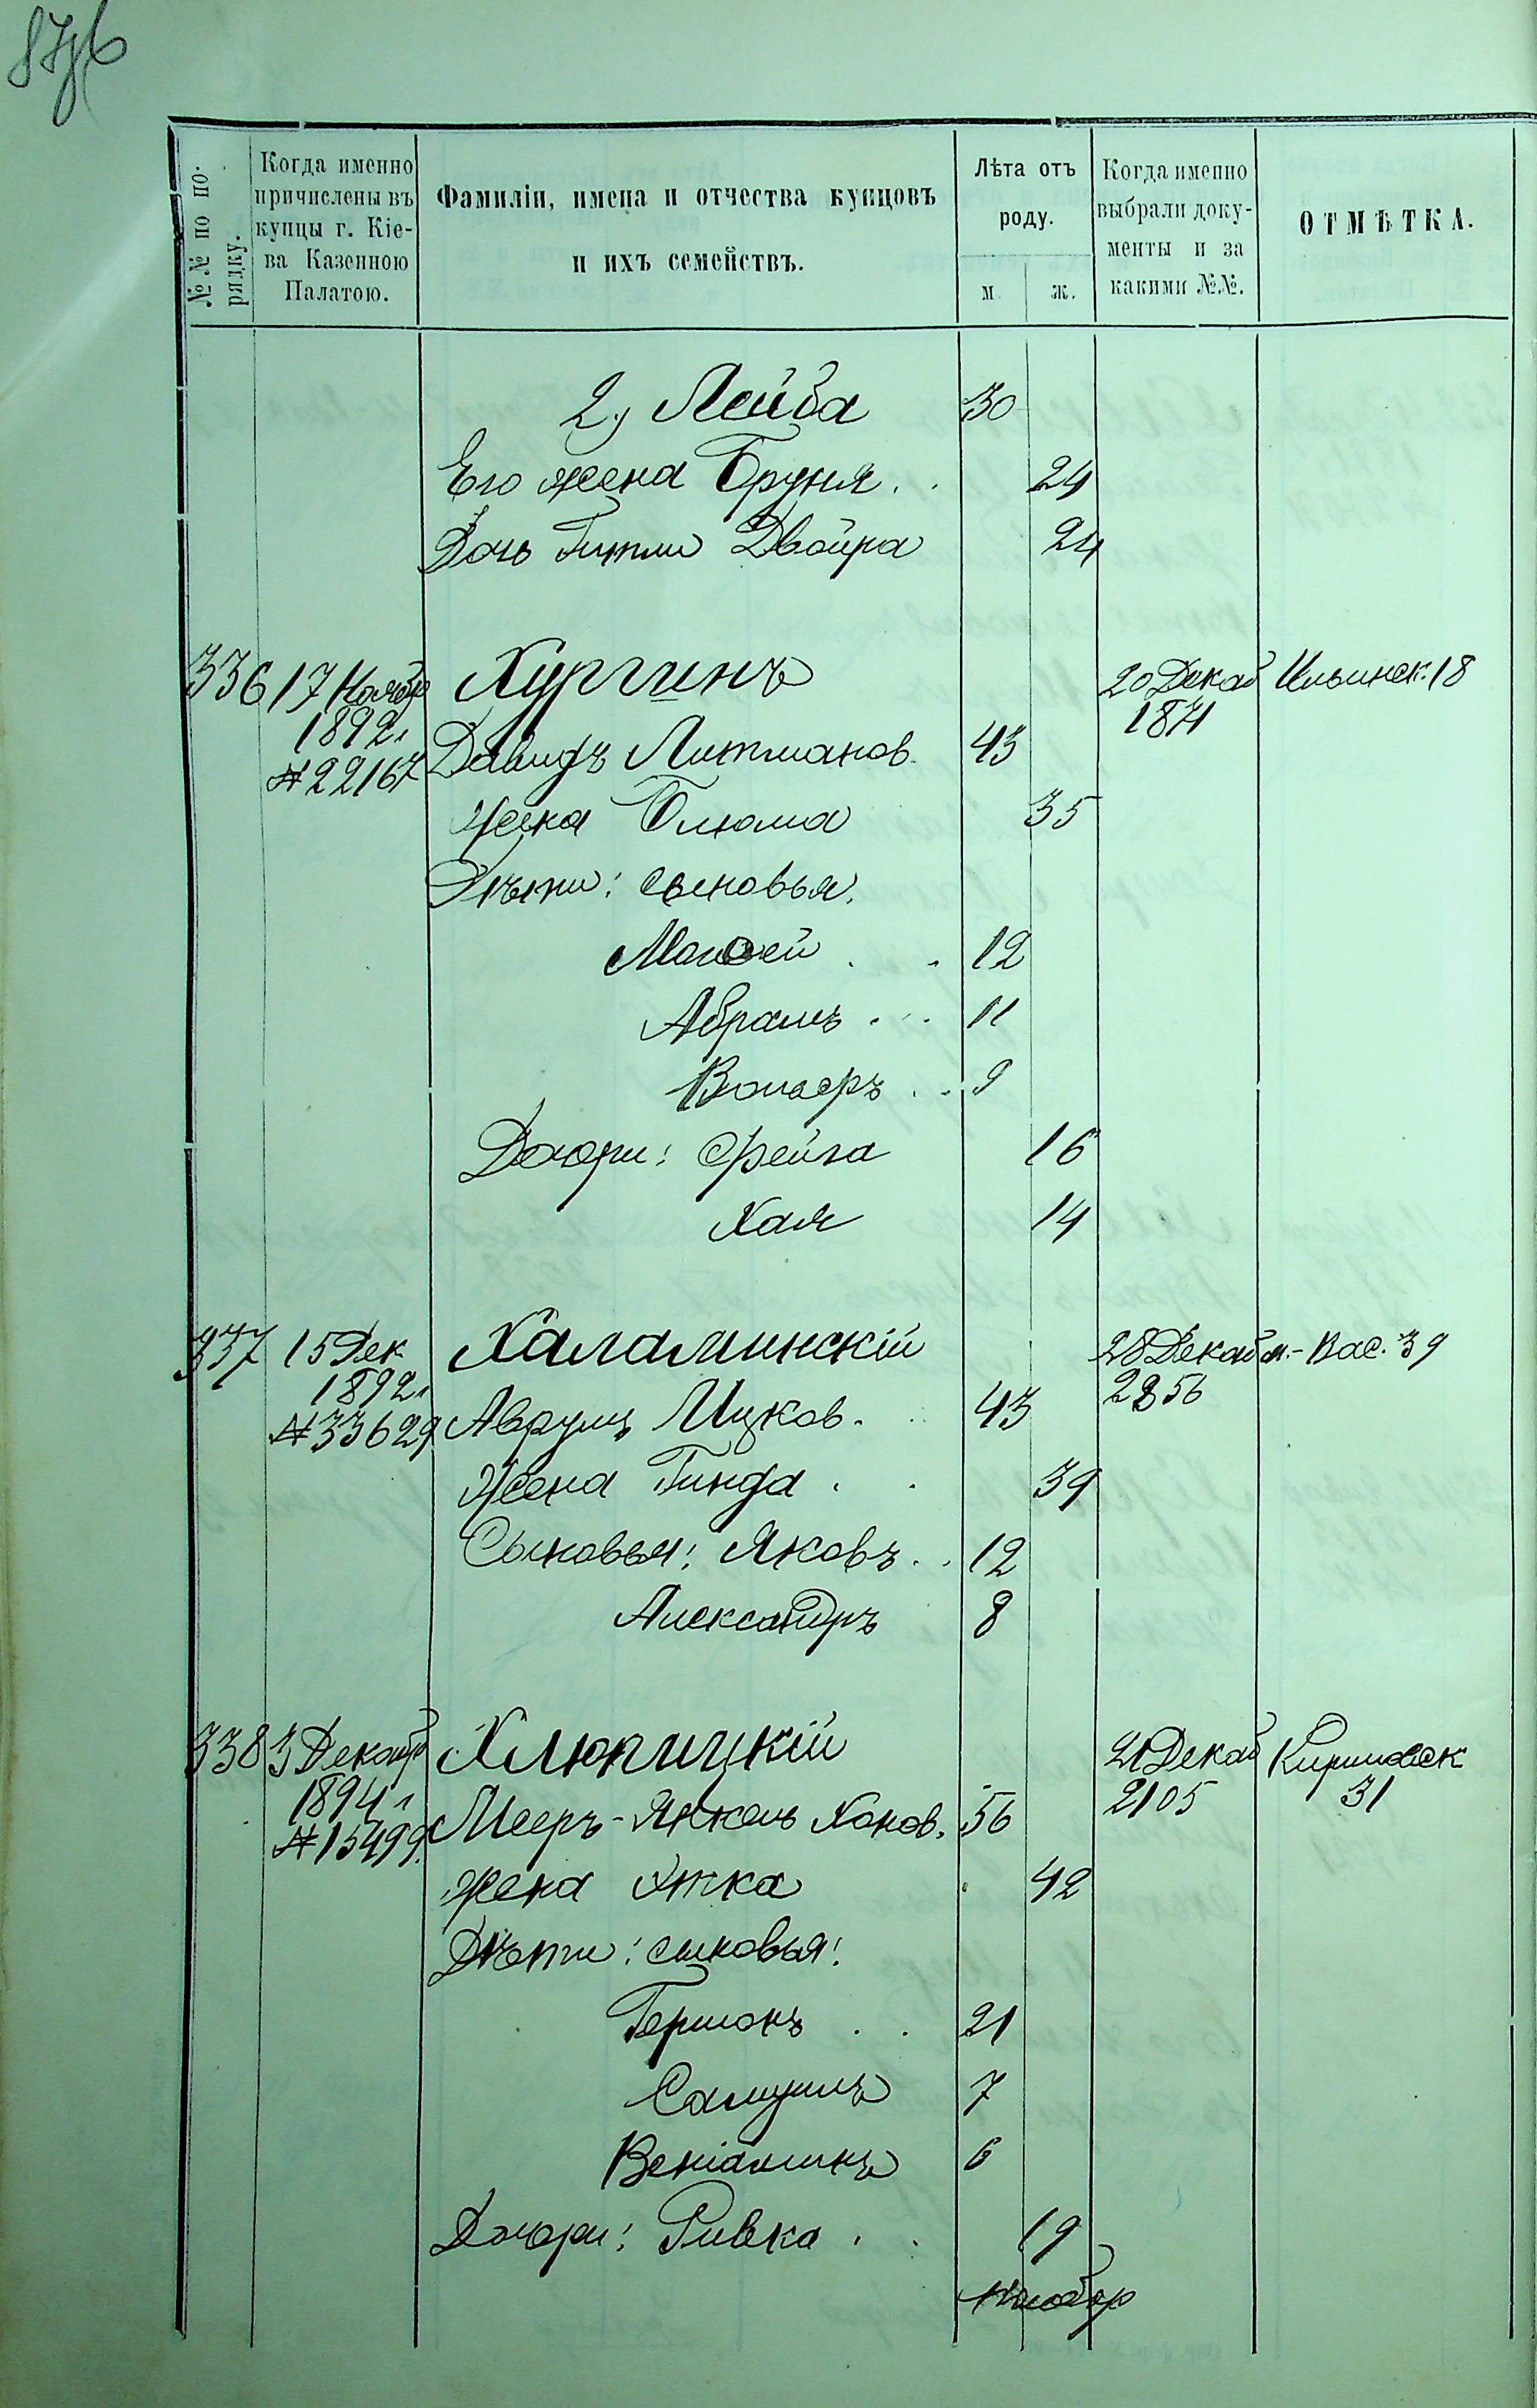 №№ по порядку.
Когда именно причислены въ купцы г. Кіева Казенною Палатою.
Фамиліи, имена и отчества купцовъ и ихъ семействъ.
Лѣта отъ роду.
м. ж.
Когда именно выбрали документы и за какими №№.
ОТМѢТКА.
2, Лейба 30
Его жена Бруня . . 24
Дочь Гитли Двойра 24
336 17 Ноябр Хургинъ 20 Декаб Ильинск. 18
1892 г 1871
№ 22167 Давидъ Литманов. 43
Жена Блюма 35
Дѣти: сыновья.
Моисей . . 12
Абрамъ . . . 11
Вольфъ . . 9
Дочери: Фейга 16
Хая 14
337 15 Дек Халаминскій 28 Декаб м.-Вас. 39
1892 г 2856
№ 33629 Аврумъ Ицков. 43
Жена Гинда . . 39
Сыновья: Яковъ . . 12
Александръ 8
338 3 Декабр Хлюпицкій 21 Декаб
1894 г 2105 31
№ 15499. Мееръ-Янкель Хонов. 56
Жена Итка 42
Дѣти: сыновья:
Германъ . . 21
Самуилъ 7
Веніаминъ 6
Дочери: Ривка . . 19